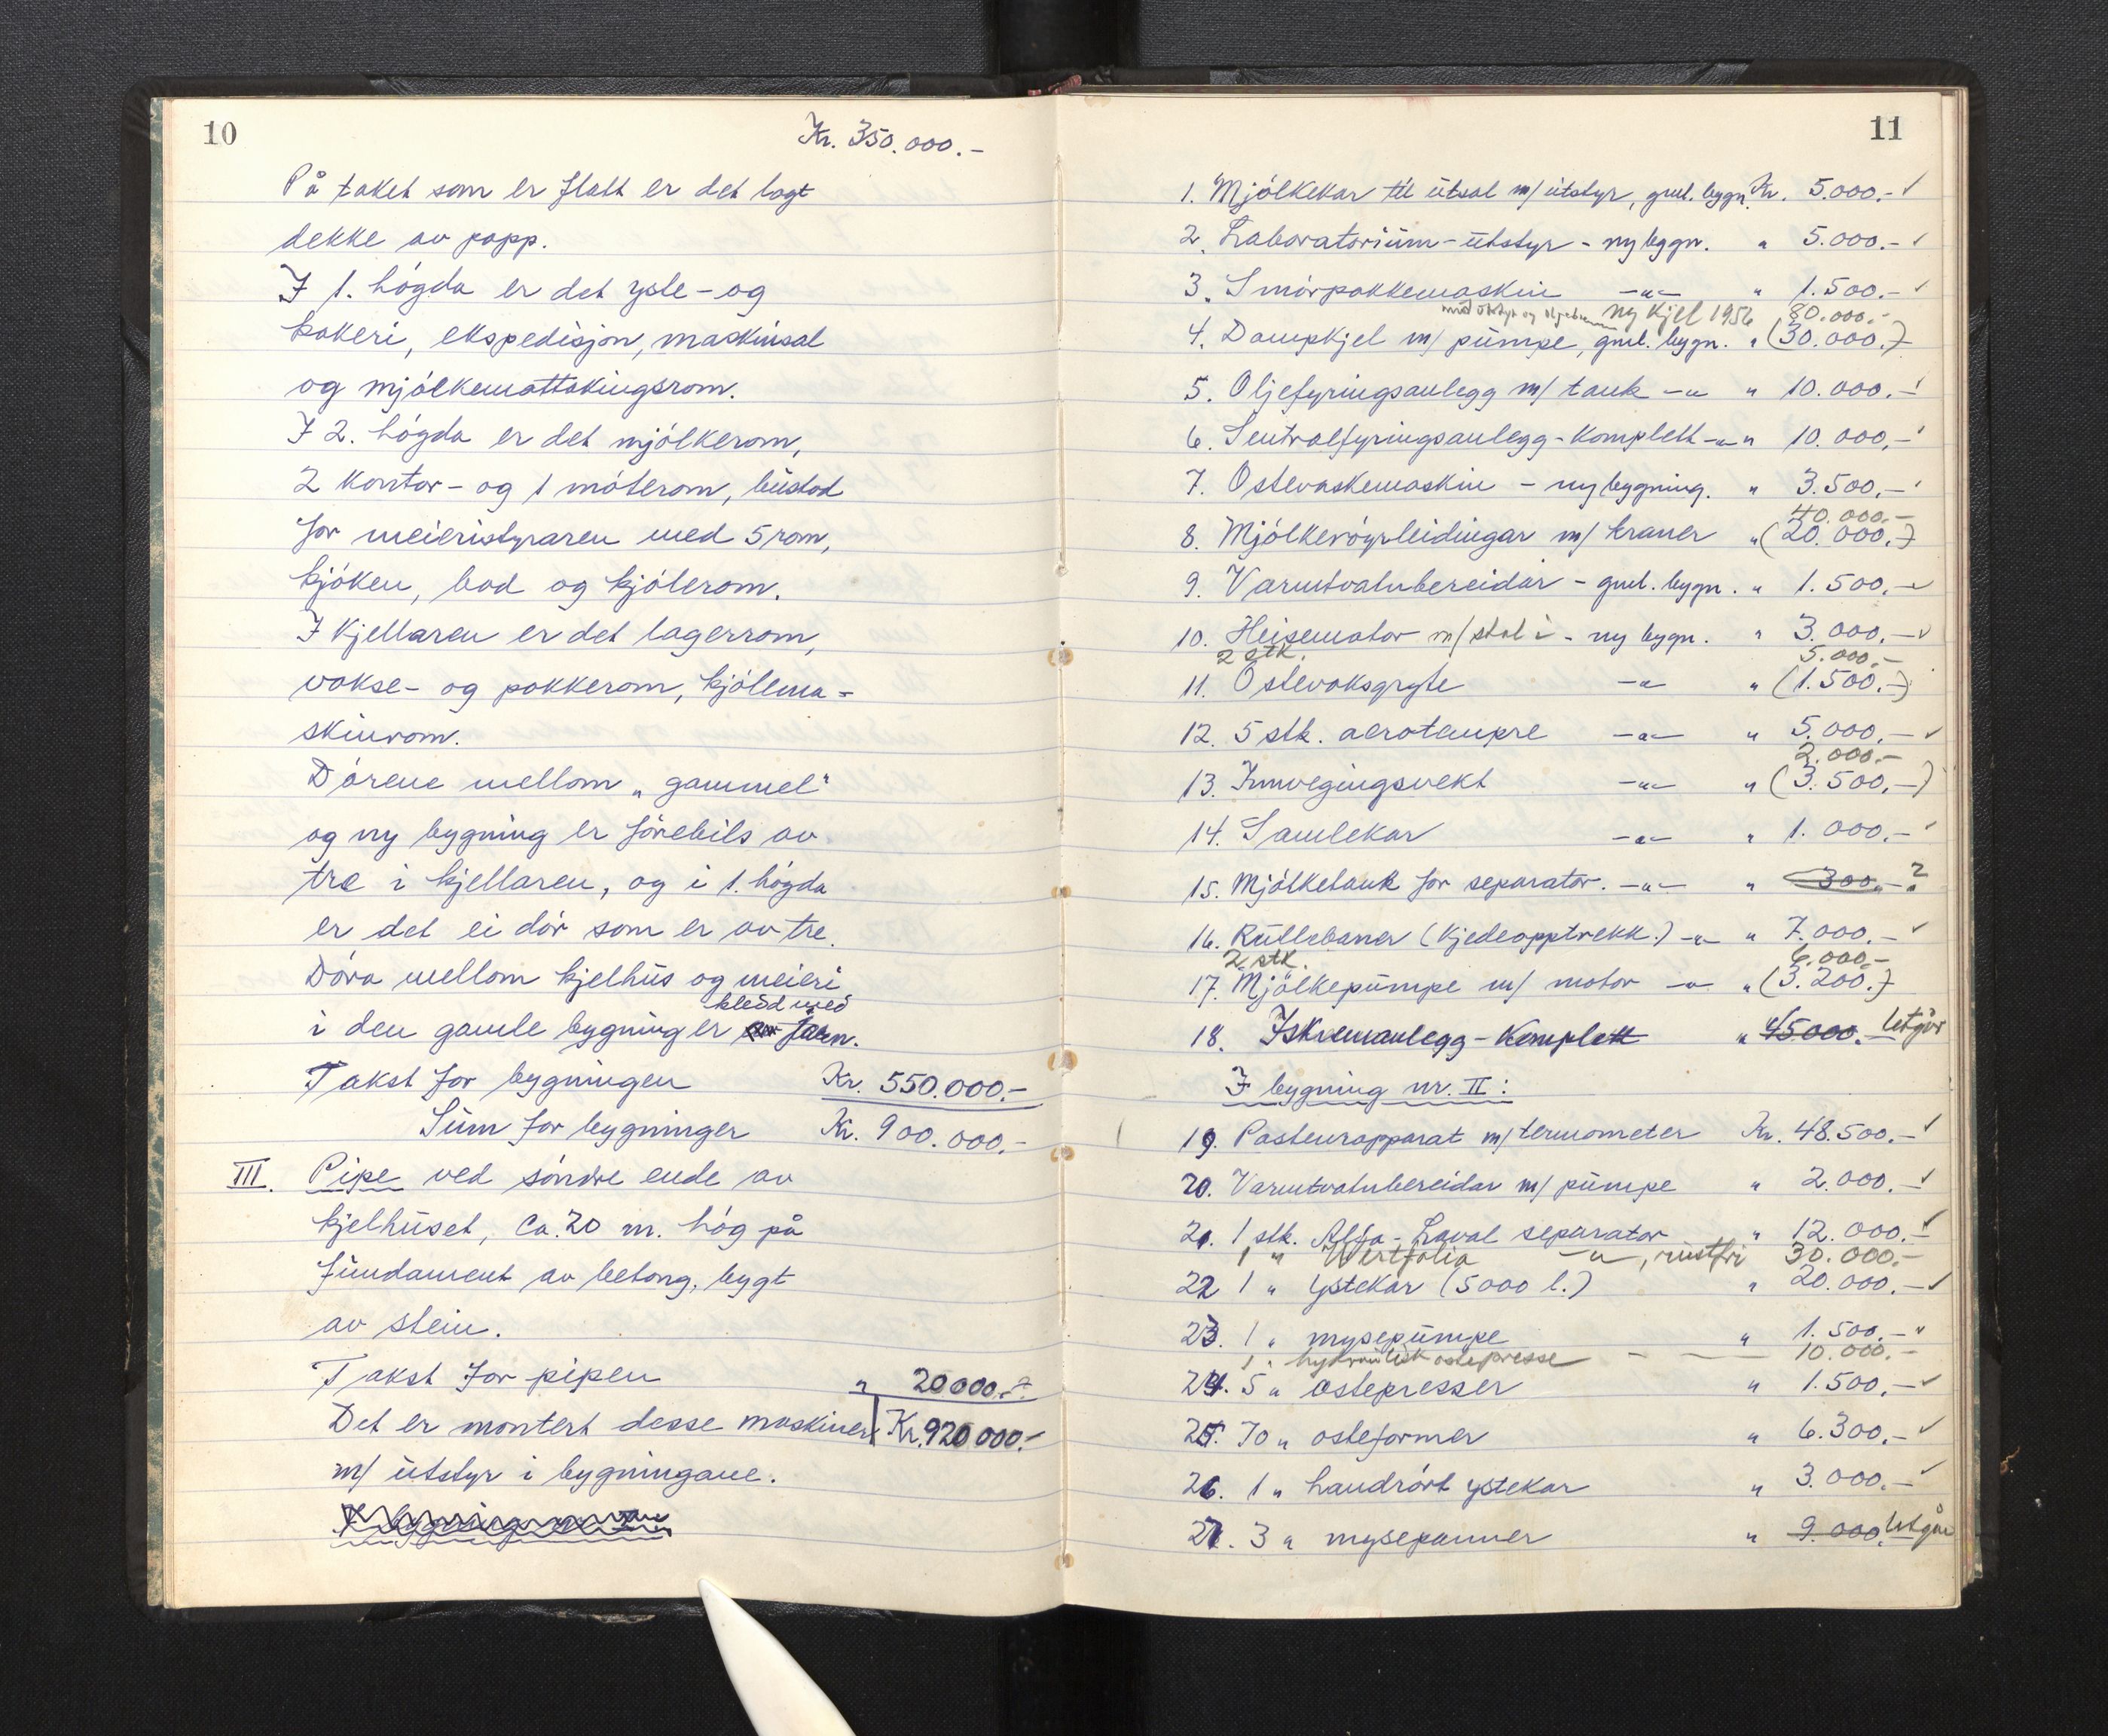 10
Kr. 350.000.-
På taket som er flatt er det lagt
dekke av papp.
I 1. høgda er det yste- og
kokeri, ekspedisjon, maskinsal
og mjølkemottakingsrom.
I 2. høgda er det mjølkerom,
2 kontor- og 1 møterom, bustad
for meieristyraren med 5 rom,
kjøken, bad og kjølerom.
I kjellaren er det lagerrom,
vokse- og pakkerom, kjølema-
skinrom.
Dørene mellom „gammel"
og ny bygning er førebils av
tre i kjellaren, og i 1. høgda
er det ei dør som er av tre.
Døra mellom kjelhus og meieri
kledd med
i den gamle bygning er av jarn.
Takst for bygningen Kr. 550.000.-
Sum for bygninger Kr. 900.000.-
III. Pipe ved søndre ende av
kjelhuset, ca. 20 m. høg på
fundament av betong, bygt
av stein.
Takst for pipen " 20000.-
Det er montert desse maskiner Kr. 920000.-
m/ utstyr i bygningane.
11
1. Mjølkekar til utsal m/ utstyr, gml. bygn. Kr. 5.000.- ✓
2. Laboratorium-utstyr - ny bygn. " 5.000.- ✓
3. Smørpakkemaskin -"- " 1.500.- ✓
ny kjel 1956 80.000.-
4. Dampkjel m/ pumpe, gml. bygn. " (30.000.-)
5. Oljefyringsanlegg m/ tank -"- " 10.000.- ✓
6. Sentralfyringsanlegg - komplett -"- " 10.000.- ✓
7. Ostevaskemaskin - ny bygning. " 3.500.- ✓
40.000.-
8. Mjølkerøyrleidingar m/ kraner " (20.000.-)
9. Varmtvatnbereidar - gml. bygn. " 1.500.- ✓
10. Heisemotor m/ stol i - ny bygn. " 3.000.- ✓
2 stk. 5.000.-
11. Ostevoksgryte -"- " (1.500.-)
12. 5 stk. aerotempre -"- " 5.000.- ✓
2.000.-
13. Innvegingsvekt -"- " (3.500.-)
14. Samlekar -"- " 1.000.- ✓
15. Mjølketank for separator. -"- " 300.- ?
16. Rullebaner (kjedeopptrekk.) -"- " 7.000.- ✓
2 stk. 6.000.-
17. Mjølkepumpe m/ motor -"- " (3.200.-)
18. Iskremanlegg - komplett " 45000.- Utgår
I bygning nr. II:
19. Pasteurapparat m/ termometer Kr. 48.500.- ✓
20. Varmtvatnbereidar m/ pumpe " 2.000.- ✓
21. 1 stk. Alfa-Laval separator " 12.000.- ✓
1 " Westfalia -"-, rustfri 30.000.-
22 1 " ystekar (5000 l.) " 20.000.- ✓
23. 1 " mysepumpe " 1.500.- "
1 " hydraulisk ostepresse - — 10.000.-
24. 5 " ostepresser " 1.500.- ✓
25. 70 " osteformer " 6.300.- ✓
26. 1 " handrørt ystekar " 3.000.- ✓
27. 3 " mysepanner " 9.000.- Utgår